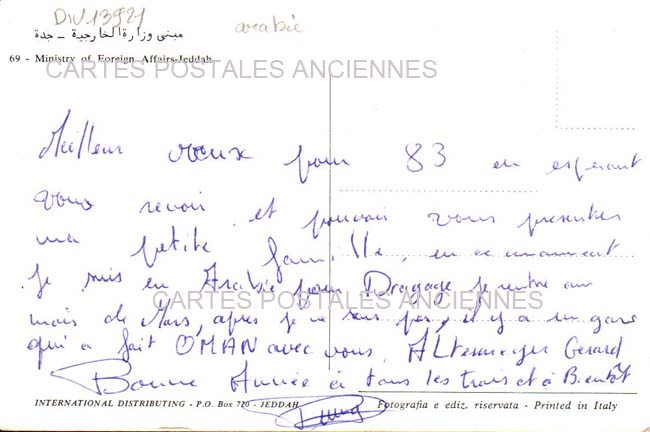 DIV13921
arabie
مبنى وزارة الخارجية - جدة
69 - Ministry of Foreign Affairs-Jeddah
CARTES POSTALES ANCIENNES
Meilleurs voeux pour 83 en esperant
vous revoir et pouvoir vous presenter
ma petite famille, en ce moment
je suis en Arabie pour Dragage je rentre au
CARTES POSTALES ANCIENNES
mois de Mars, apres je ne sais pas, il y a un gars
qui a fait OMAN avec vous, Altenmeyer Gerard
Bonne Année à tous les trois et à Bientôt
INTERNATIONAL DISTRIBUTING - P.O. Box 720 - JEDDAH
Fotografia e ediz. riservata - Printed in Italy